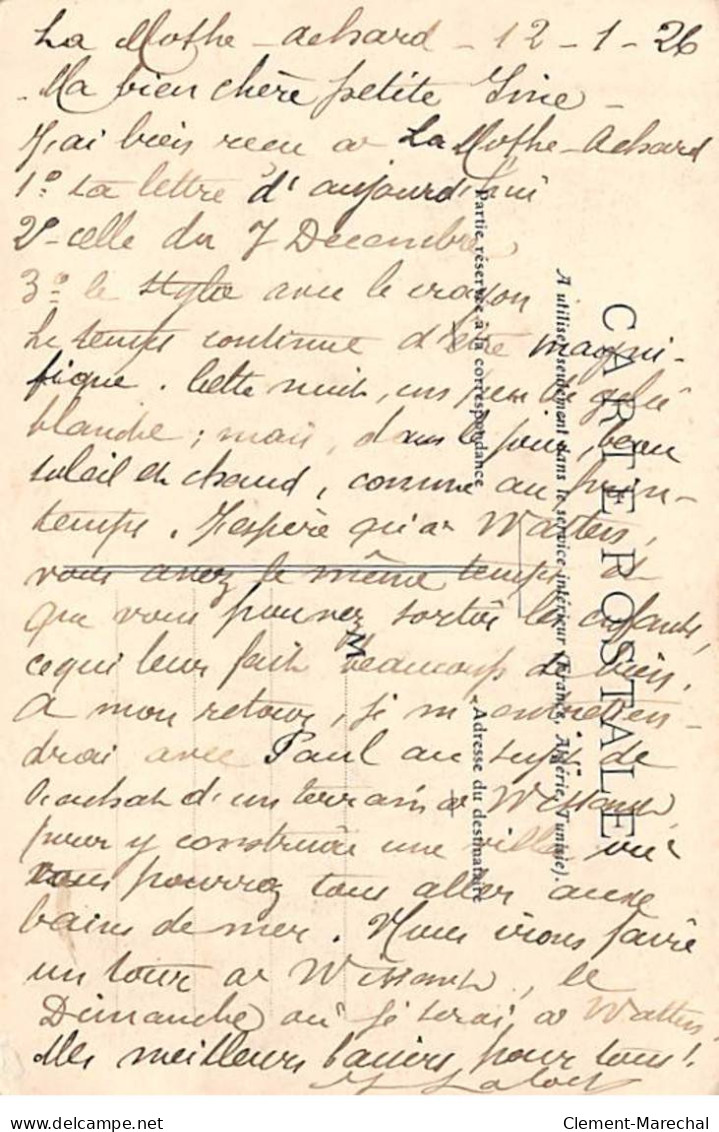 La Mothe-Achard - 12-1-26
Ma bien chère petite
J'ai bien reçu à La Mothe-Achard
1º ta lettre d'aujourd'hui
2º celle du 7 Décembre,
3º le stylo avec le crayon
Le temps continue d'être magni-
fique. Cette nuit, un peu de gelée
blanche ; mais, dans le jour, beau
soleil et chaud, comme au prin-
temps. J'espère qu'à Watten,
vous avez le même temps et
que vous pouvez sortir les enfants,
ce qui leur fait beaucoup de bien.
A mon retour, je m'entretien-
drai avec Paul au sujet de
l'achat d'un terrain à Wissant,
pour y construire une villa où
vous pourrez tous aller aux
bains de mer. Nous irons faire
un tour à Wissant, le
Dimanche où je serai à Watten.
Mes meilleurs baisers pour tous !
CARTE POSTALE
A utiliser seulement dans le service intérieur (France, Algérie, Tunisie).
Partie réservée à la correspondance
Adresse du destinataire
M
Clement-Marechal